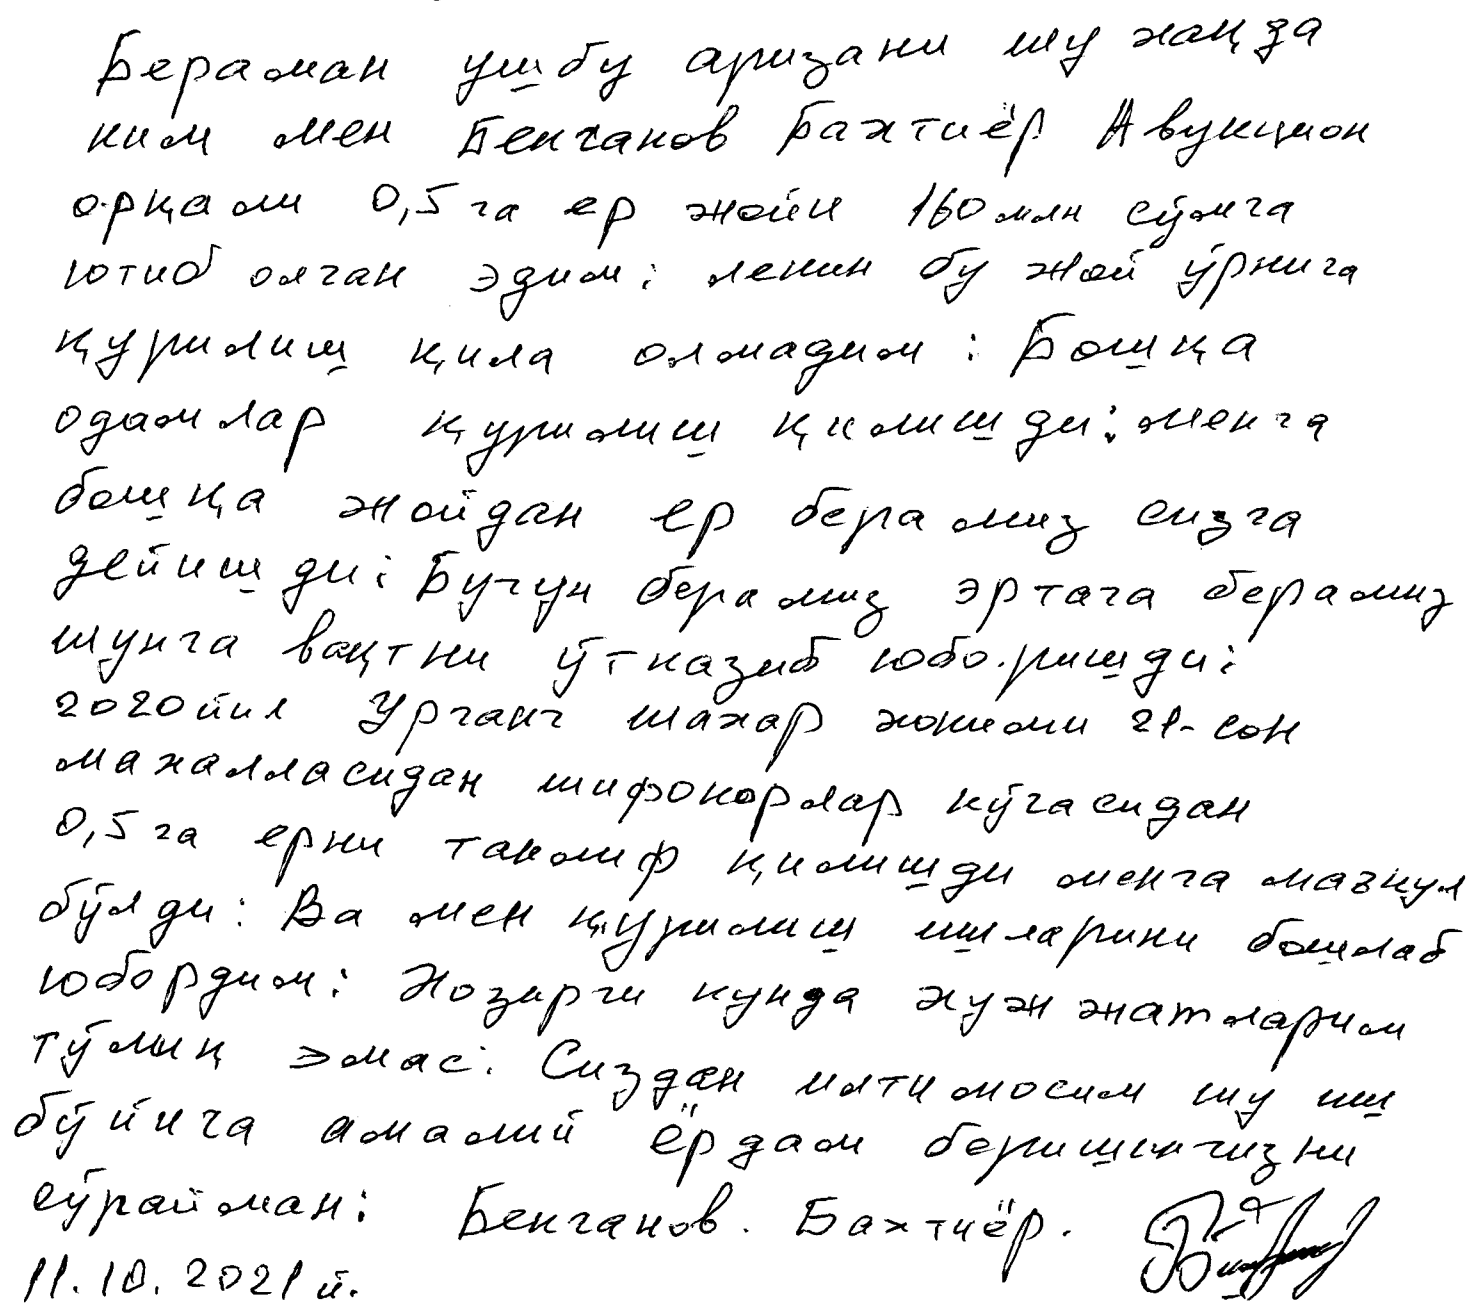 Бераман ушбу аризани шу хақда
ким мен Бекчанов Бахтиёр Авукцион
орқали 0,5 га ер жойи 160 млн сўмга
ютиб олган эдим: лекин бу жой ўрнига
қурилиш қила олмадим: Бошқа
одамлар қурилиш қилишди: менга
бошқа жойдан ер берамиз сизга
дейишди: Бугун берамиз эртага берамиз
шунга вақтни ўтказиб юборишди:
2020 йил Урганч шахар хокими 21-сон
махалласидан шифокорлар кўчасидан
0,5 га ерни таклиф қилишди менга маъқул
бўлди: Ва мен қурилиш ишларини бошлаб
юбордим: Хозирги кунда хужжатларим
тўлиқ эмас: Сиздан илтимосим шу иш
бўйича амалий ёрдам беришингизни
сўрайман: Бекчанов. Бахтиёр.
11.10.2021 й.